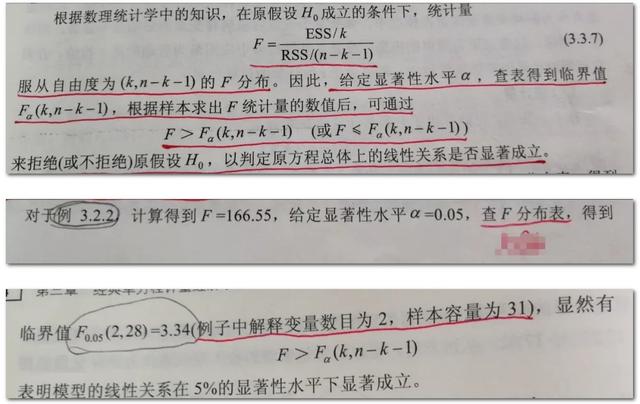 根据数理统计学中的知识，在原假设 H₀ 成立的条件下，统计量
F = ESS/k / RSS/(n-k-1) (3.3.7)
服从自由度为 (k,n-k-1) 的 F 分布。因此，给定显著性水平 α，查表得到临界值
Fα(k,n-k-1)，根据样本求出 F 统计量的数值后，可通过
F > Fα(k,n-k-1) (或 F ⩽ Fα(k,n-k-1))
来拒绝(或不拒绝)原假设 H₀，以判定原方程总体上的线性关系是否显著成立。
对于例 3.2.2，计算得到 F=166.55，给定显著性水平 α=0.05，查 F 分布表，得到
临界值 F₀.₀₅(2,28)=3.34(例子中解释变量数目为 2，样本容量为 31)，显然有
F > Fα(k,n-k-1)
表明模型的线性关系在 5%的显著性水平下显著成立。